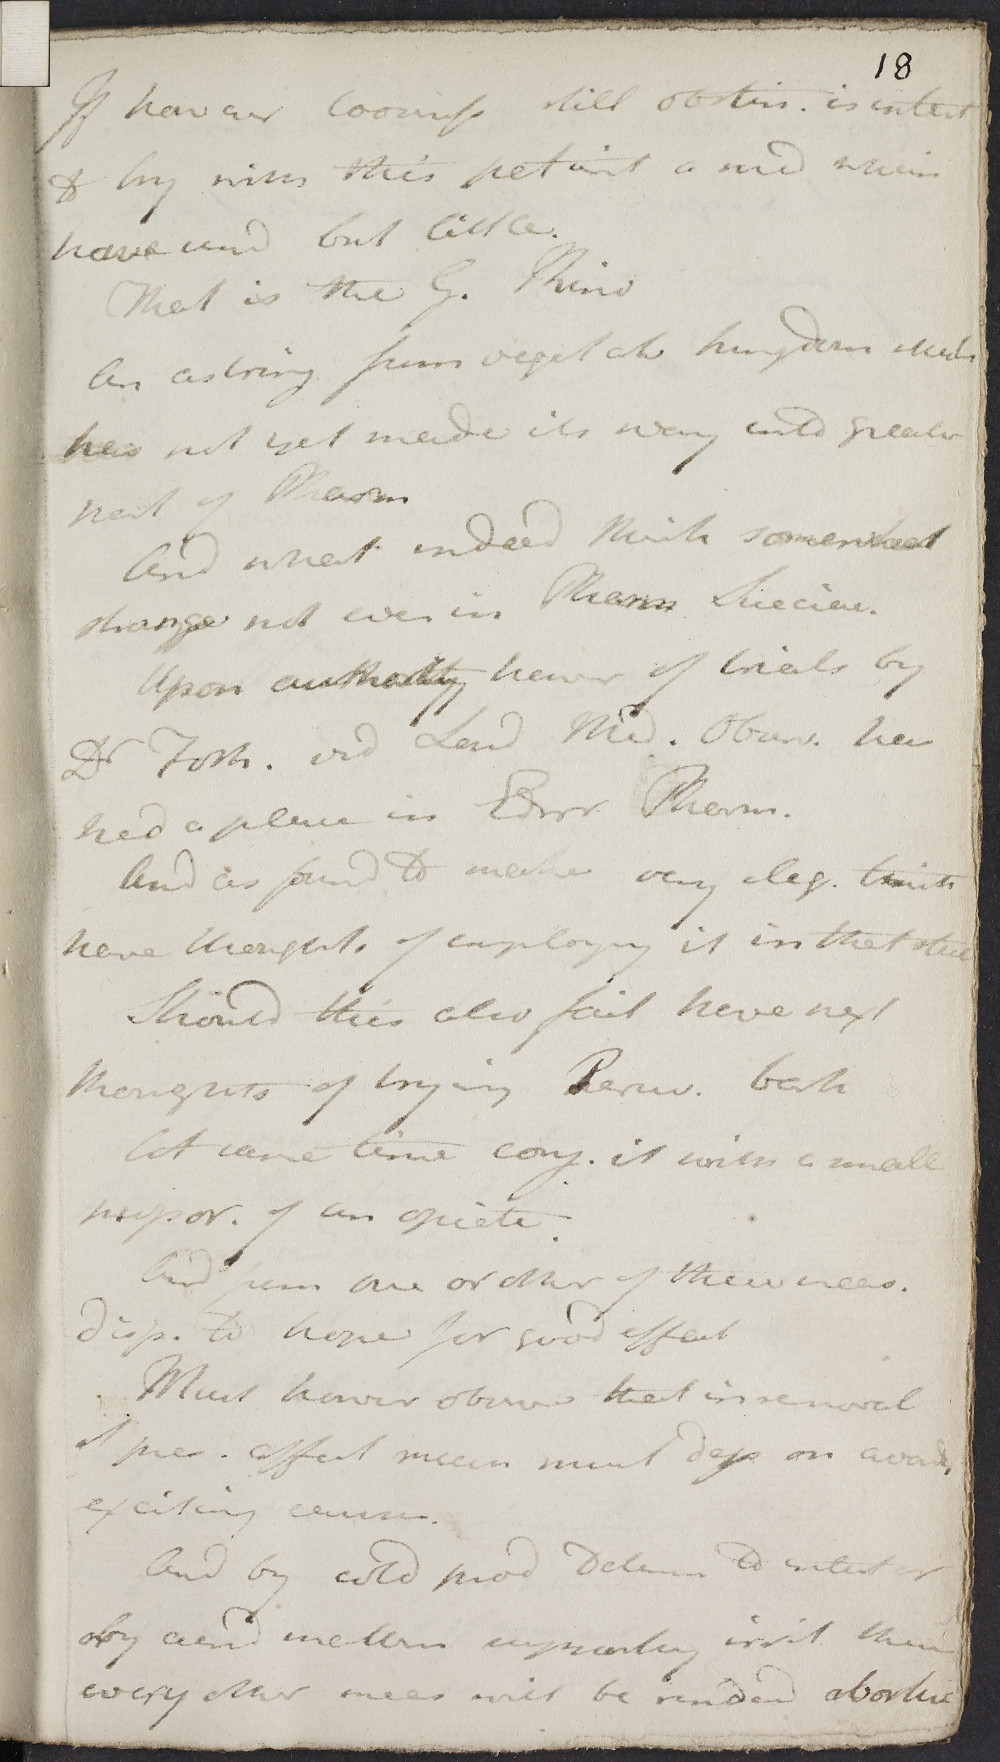 18
If however looseness still obstin. is intent
to try with this patient a med which
have used but little.
That is the G. Kino
An astring from vegetab kingdom which
has not yet made its way into greater
part of Pharm
And what indeed think somewhat
strange not even in Pharm Sueciae.
Upon authority however of trials by
Dr Foth. vid Lond Med. Observ. has
had a place in Edinr Pharm.
And as found to make very eleg. tinct
have thoughts of employing it in that state
Should this also fail have next
thoughts of trying Peruv. bark
At same time conj. it with a small
propor. of an opiate.
And from one or other of these meas.
disp. to hope for good effect
Must however observe that in removal
of pres. affect much must dep on avoidg
exciting causes.
And by cold prod Determ to intest or
by acrid matters irrit them
every other meas will be rendered abortive